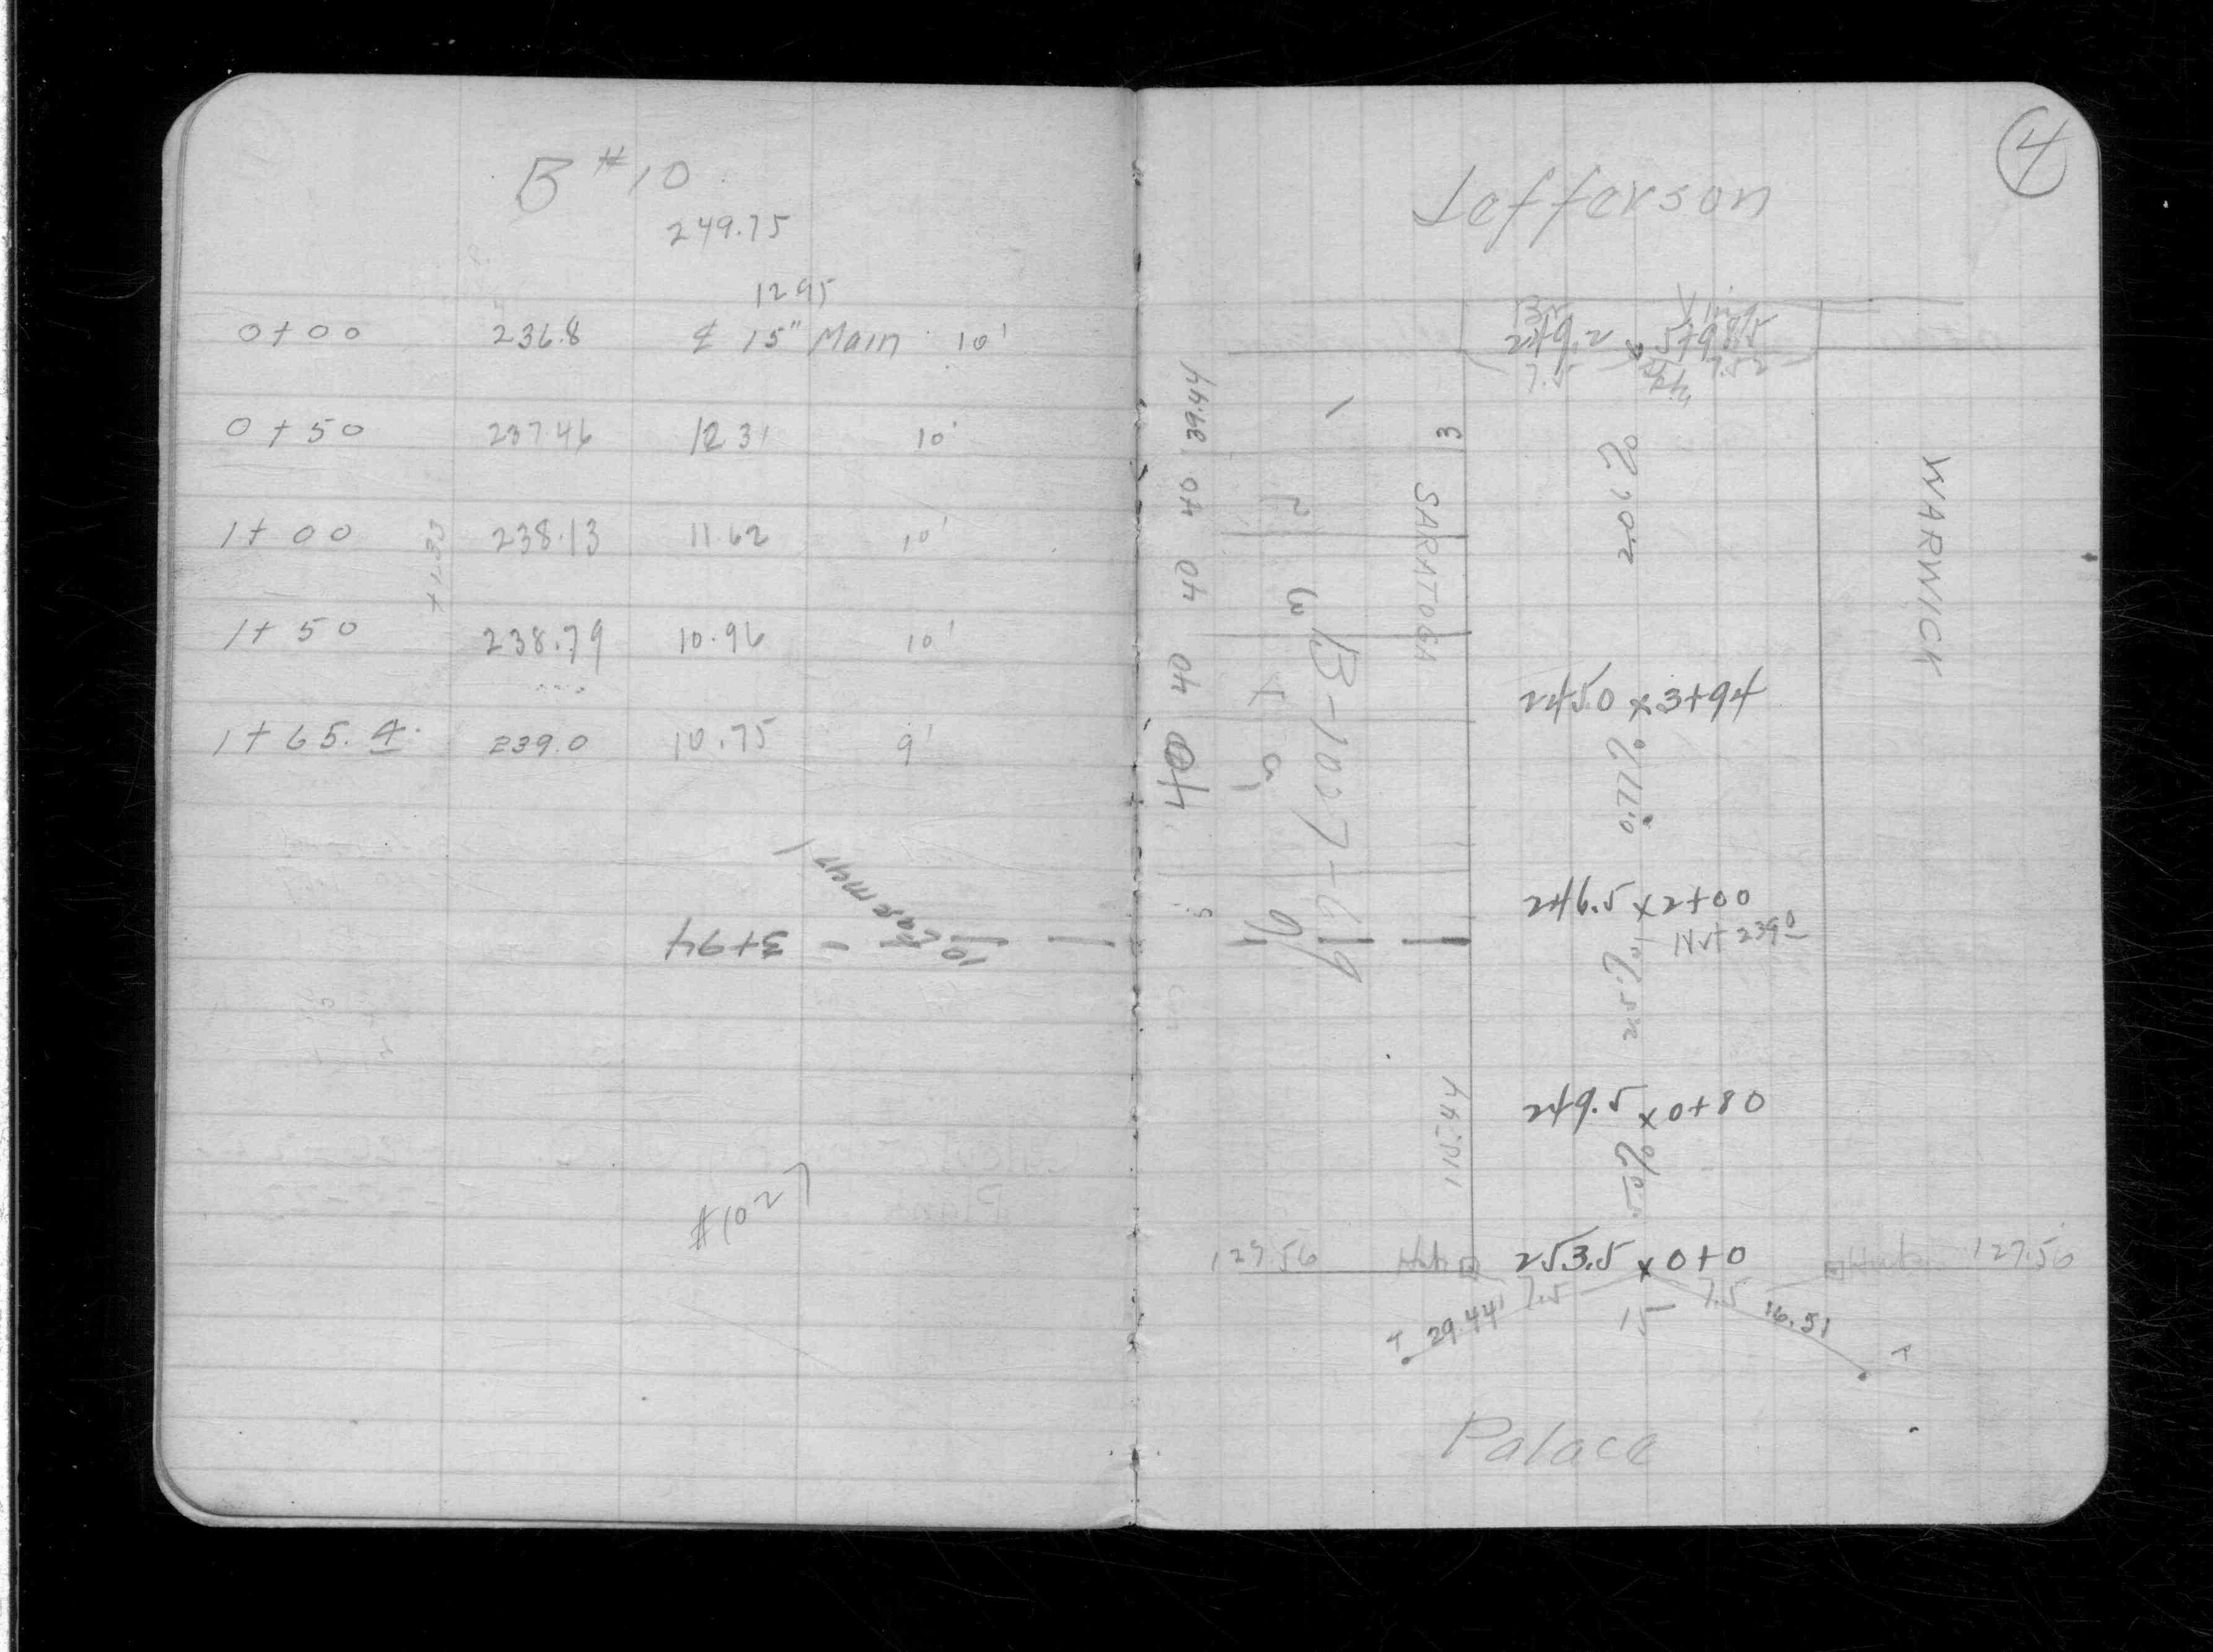 B #10
249.75
1295
0+00 236.8 ⅊ 15" Main 10'
0+50 237.46 1231 10'
1+00 238.13 11.62 10'
+1.33
1+50 238.79 10.96 10'
1+65.4 239.0 10.75 9'
10' Easement
3+94
#1027
4
Jefferson
249.2 x 5+98.5
7.5
WARWICK
SARATOGA
39.44
40
40
40
40
1
2
3
4
5
B-1027-69
2.0%
245.0 x 3+94
0.77%
246.5 x 2+00
Nvt 239.0
2.5%
249.5 x 0+80
115.44
5.0%
127.56 Hub 253.5 x 0+0 Hub 127.50
7.5 7.5
29.44' 15 16.51
T T
Palace